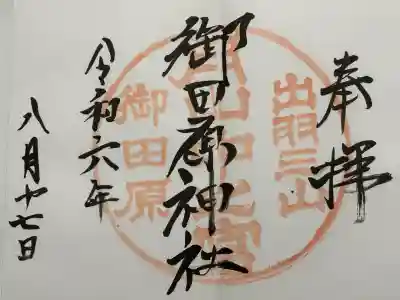 奉拝
出羽三山
月山中之宮
御田原
御田原神社
令和六年
八月十七日